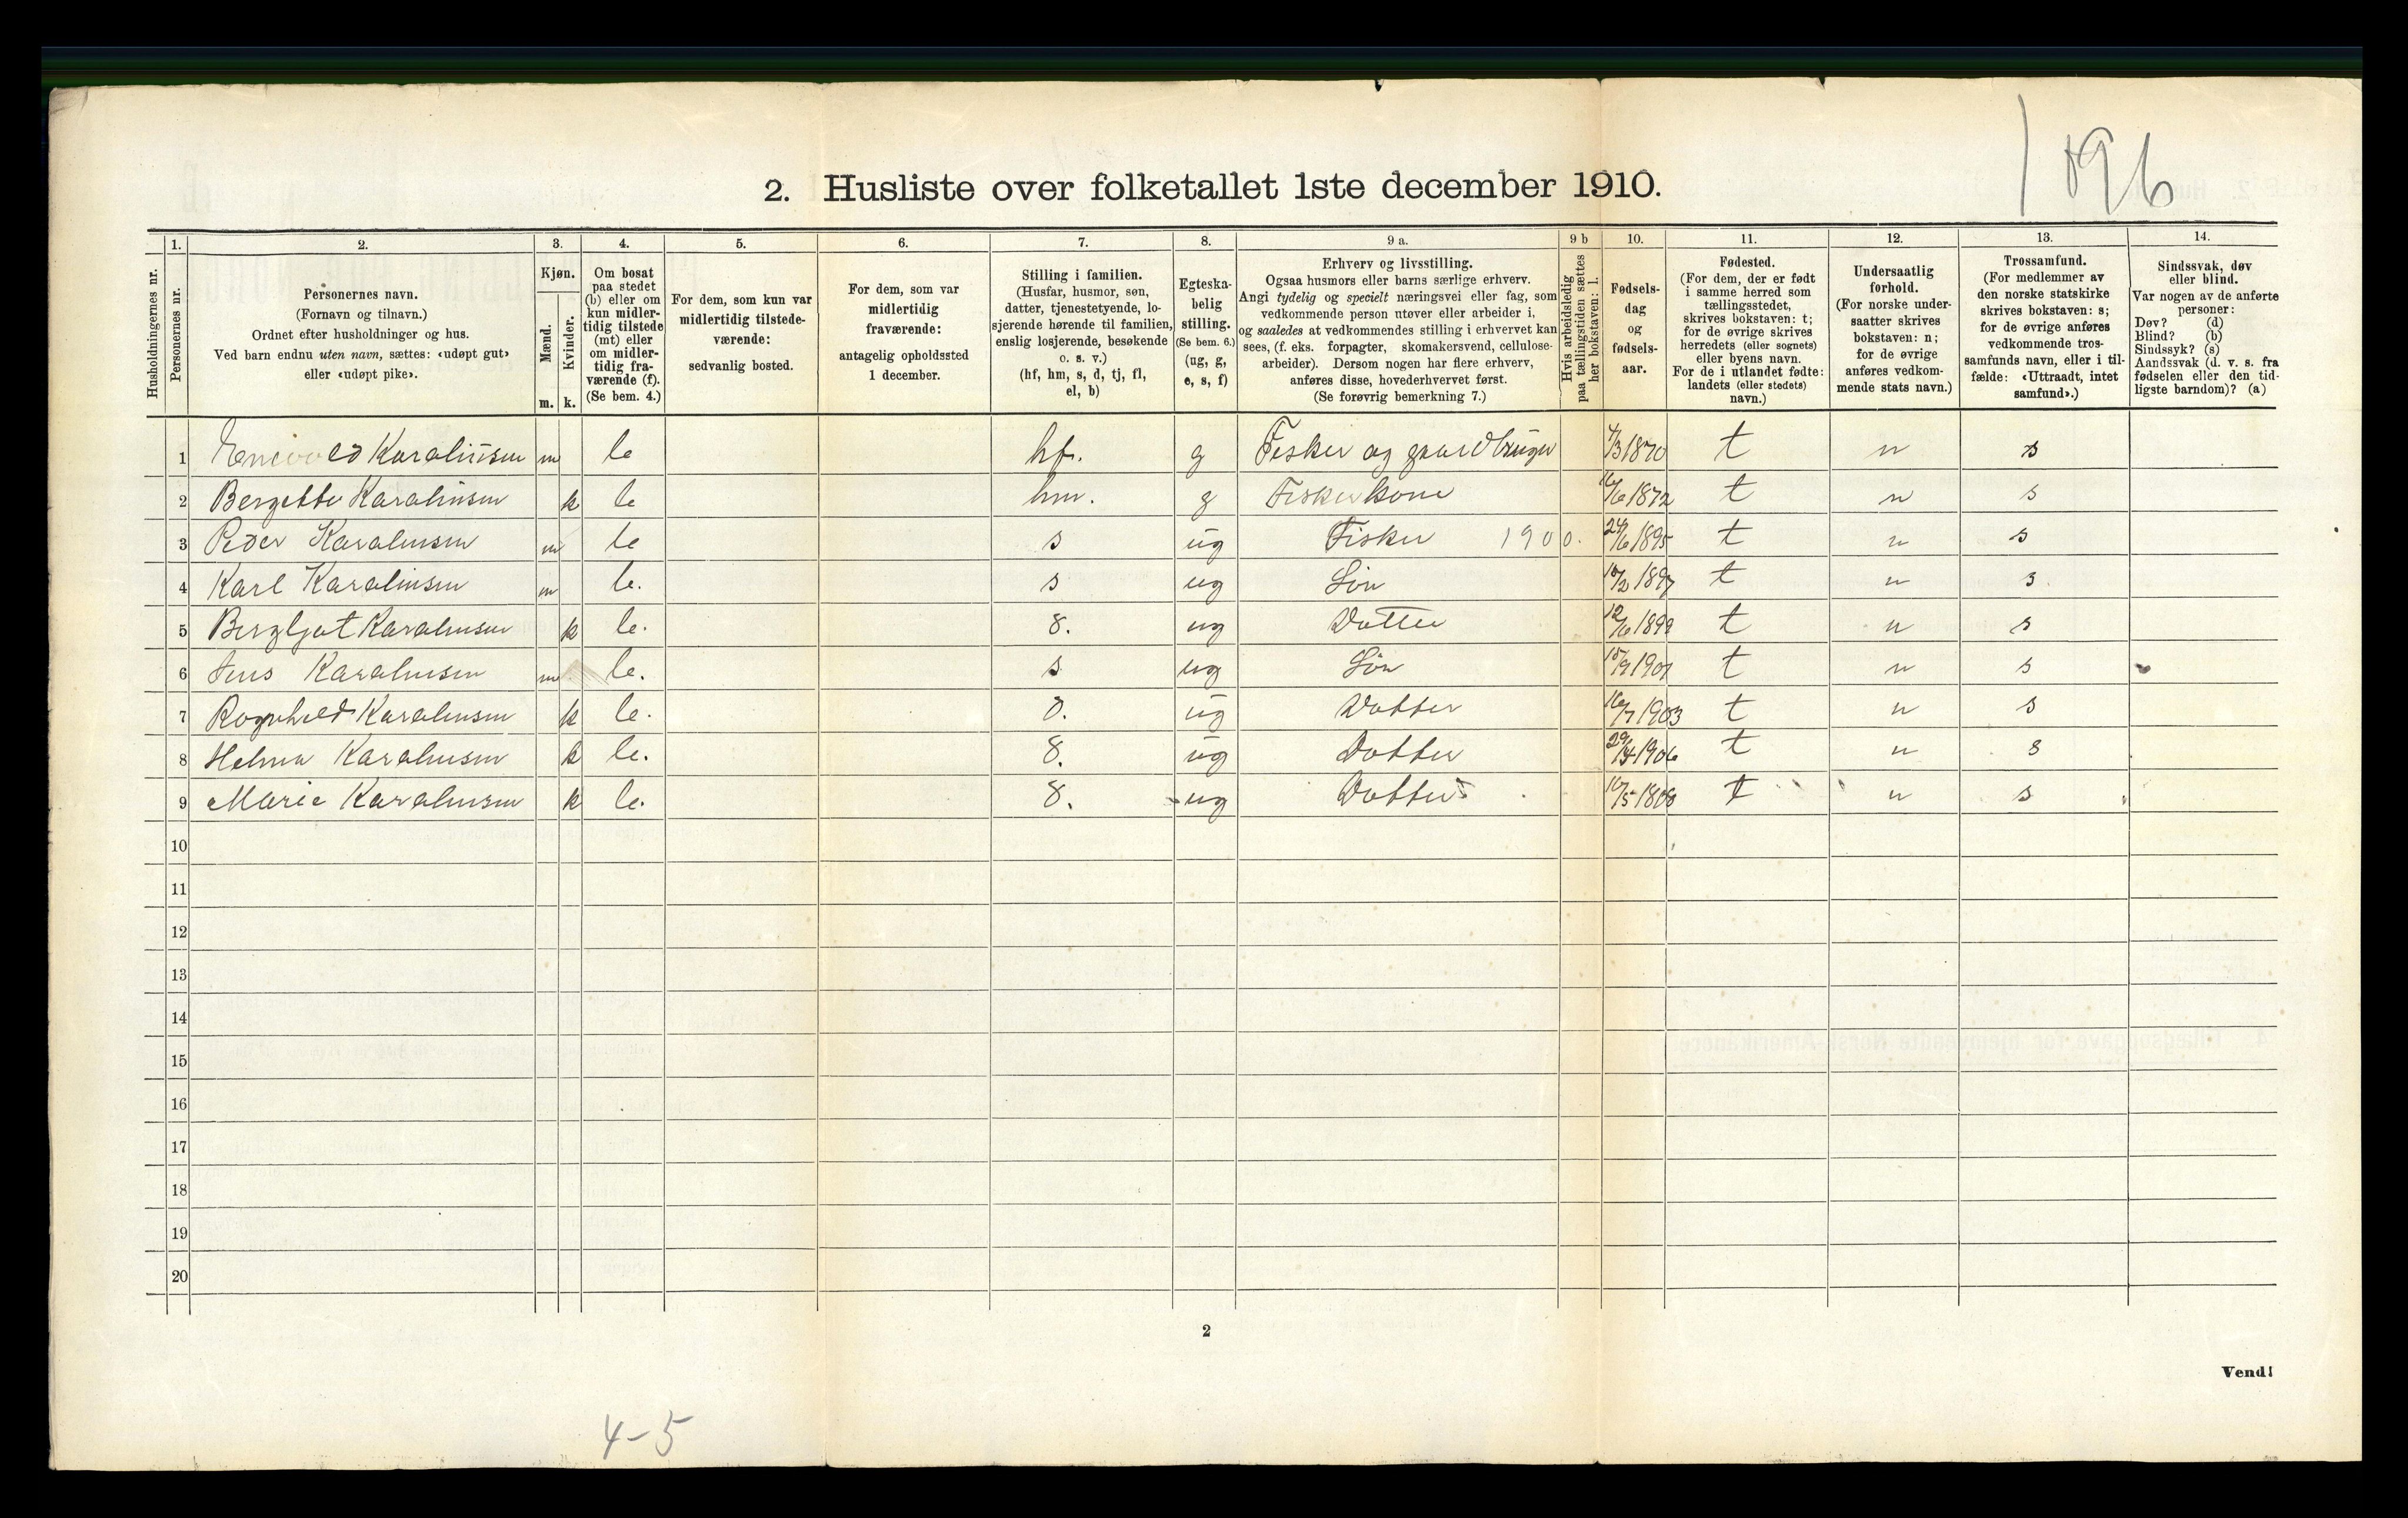 1896
2. Husliste over folketallet 1ste december 1910.
Husholdningernes nr.
1. Personernes nr.
2. Personernes navn.
(Fornavn og tilnavn.)
Ordnet efter husholdninger og hus.
Ved barn endnu uten navn, sættes: «udøpt gut»
eller «udøpt pike».
3. Kjøn.
Mænd. m.
Kvinder. k.
4. Om bosat
paa stedet
(b) eller om
kun midler-
tidig tilstede
(mt) eller
om midler-
tidig fra-
værende (f).
(Se bem. 4.)
5. For dem, som kun var
midlertidig tilstede-
værende:
sedvanlig bosted.
6. For dem, som var
midlertidig
fraværende:
antagelig opholdssted
1 december.
7. Stilling i familien.
(Husfar, husmor, søn,
datter, tjenestetyende, lo-
sjerende hørende til familien,
enslig losjerende, besøkende
o. s. v.)
(hf, hm, s, d, tj, fl,
el, b)
8. Egteska-
belig
stilling.
(Se bem. 6.)
(ug, g,
e, s, f)
9 a. Erhverv og livsstilling.
Ogsaa husmors eller barns særlige erhverv.
Angi tydelig og specielt næringsvei eller fag, som
vedkommende person utøver eller arbeider i,
og saaledes at vedkommendes stilling i erhvervet kan
sees, (f. eks. forpagter, skomakersvend, cellulose-
arbeider). Dersom nogen har flere erhverv,
anføres disse, hovederhvervet først.
(Se forøvrig bemerkning 7.)
9 b Hvis arbeidsledig
paa tællingstiden sættes
her bokstaven: l.
10. Fødsels-
dag
og
fødsels-
aar.
11. Fødested.
(For dem, der er født
i samme herred som
tællingsstedet,
skrives bokstaven: t;
for de øvrige skrives
herredets (eller sognets)
eller byens navn.
For de i utlandet fødte:
landets (eller stedets)
navn.)
12. Undersaatlig
forhold.
(For norske under-
saatter skrives
bokstaven: n;
for de øvrige
anføres vedkom-
mende stats navn.)
13. Trossamfund.
(For medlemmer av
den norske statskirke
skrives bokstaven: s;
for de øvrige anføres
vedkommende tros-
samfunds navn, eller i til-
fælde: «Uttraadt, intet
samfund».)
14. Sindssvak, døv
eller blind.
Var nogen av de anførte
personer:
Døv? (d)
Blind? (b)
Sindssyk? (s)
Aandssvak (d. v. s. fra
fødselen eller den tid-
ligste barndom)? (a)
1 Karaliusen m b hf. g Fisker og gaardbruger 4/3 1870 t n s
2 Bergitte Karaliusen k b hm. g Fiskerkone 1872 t n s
3 Peder Karaliusen m b s ug Fisker 1900. 24/6 1895 t n s
4 Karl Karaliusen m b. s ug Søn 1897 t n s
5 Bergljot Karaliusen k b. d. ug Datter 12/6 1899 t n s
6 Jens Karaliusen m b. s ug Søn 1901 t n s
7 Ragnhild Karaliusen k b. d. ug Datter 16/7 1903 t n s
8 Helma Karaliusen k b. d. ug Datter 1906 t n s
9 Marie Karaliusen k b. d. ug Datter t n s
10
11
12
13
14
15
16
17
18
19
20
2
Vend!
4-5